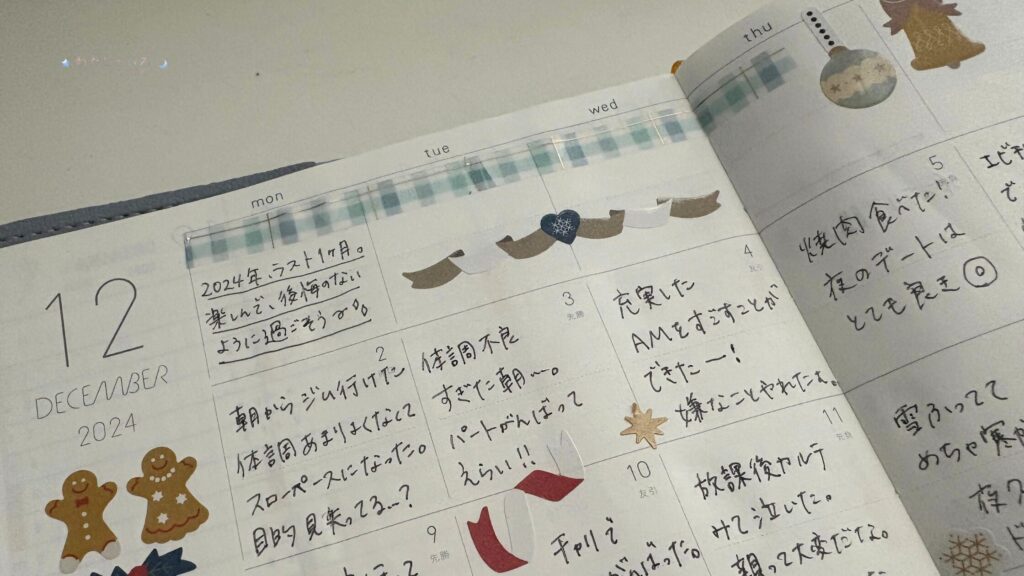 mon
tue
wed
thu
12
DECEMBER
2024
2024年、ラスト1ヶ月。
楽しんで、後悔のない
ように過ごそう
2
朝からジム行けた
体調あまりよくなくて
スローペースになった。
目的見失ってる…?
3
先勝
体調不良
すぎた朝〜。
パートがんばって
えらい!!
4
友引
充実した
AMをすごすことが
できたー!
嫌なことやれたも。
5
焼肉食べた!
夜のデートは
とても良き
エビ
で
9
先勝
10
友引
チャリで
がんばった。
11
先負
放課後カルテ
みて泣いた。
親って大変だな。
雪ふってて
めちゃ寒
夜
ド